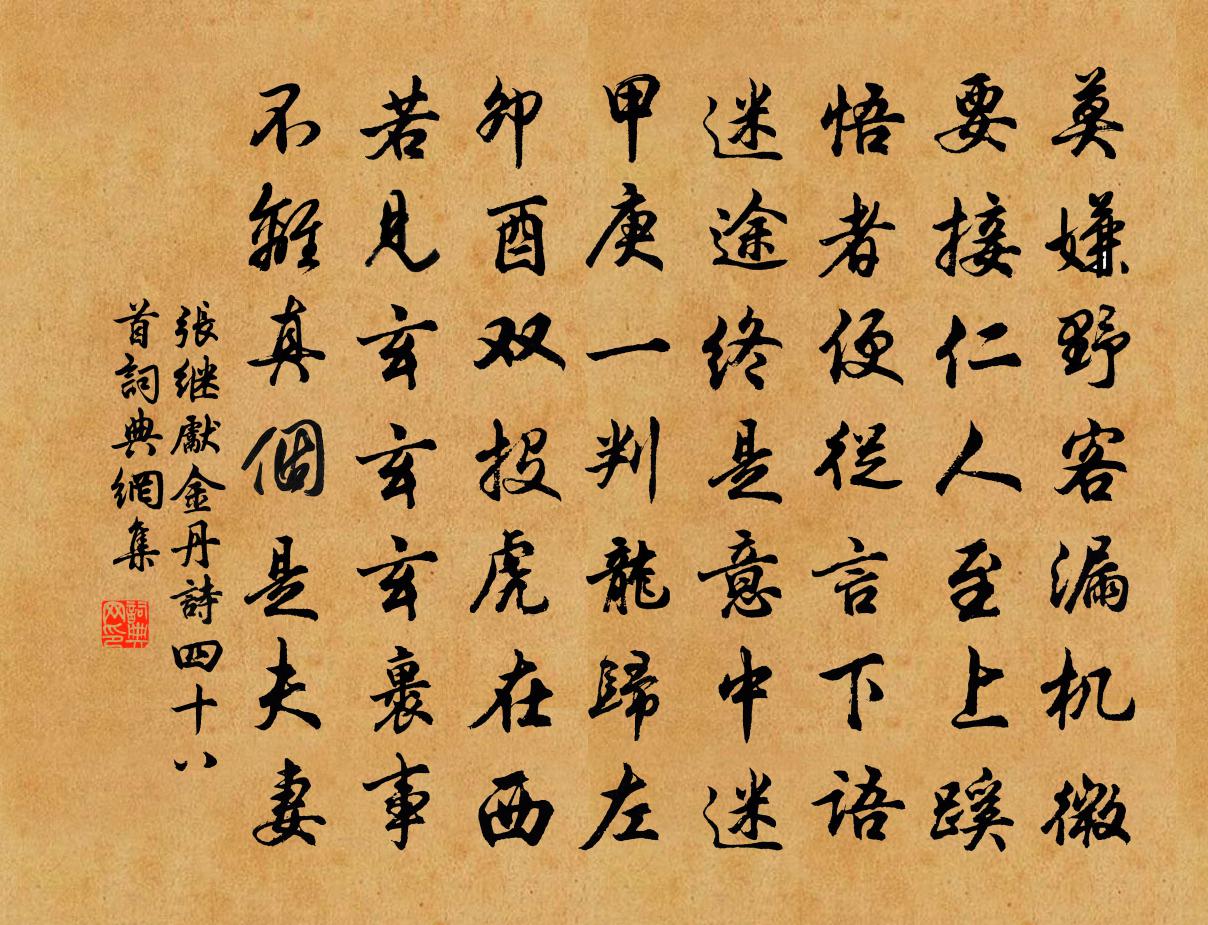 莫嫌野客漏机微
要接仁人至上蹊
悟者便從言下語
迷途终是意中迷
甲庚一判龍歸左
卯酉双投虎在西
若見玄玄玄裏事
不離真個是夫妻
張继獻金丹詩四十八
首詞典網集
詞典网印